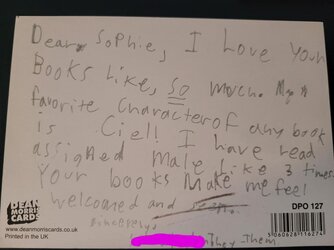 Dear Sophie, I Love Your
Books Like, so much. My
favorite character of any book
is Ciel! I have read
assigned male like 3 times.
Your books make me feel
welcomed and seen.
Sincerely,
They Them
DEAN
MORRIS
CARDS
www.deanmorriscards.co.uk
Printed in the UK
DPO 127
5060628116274